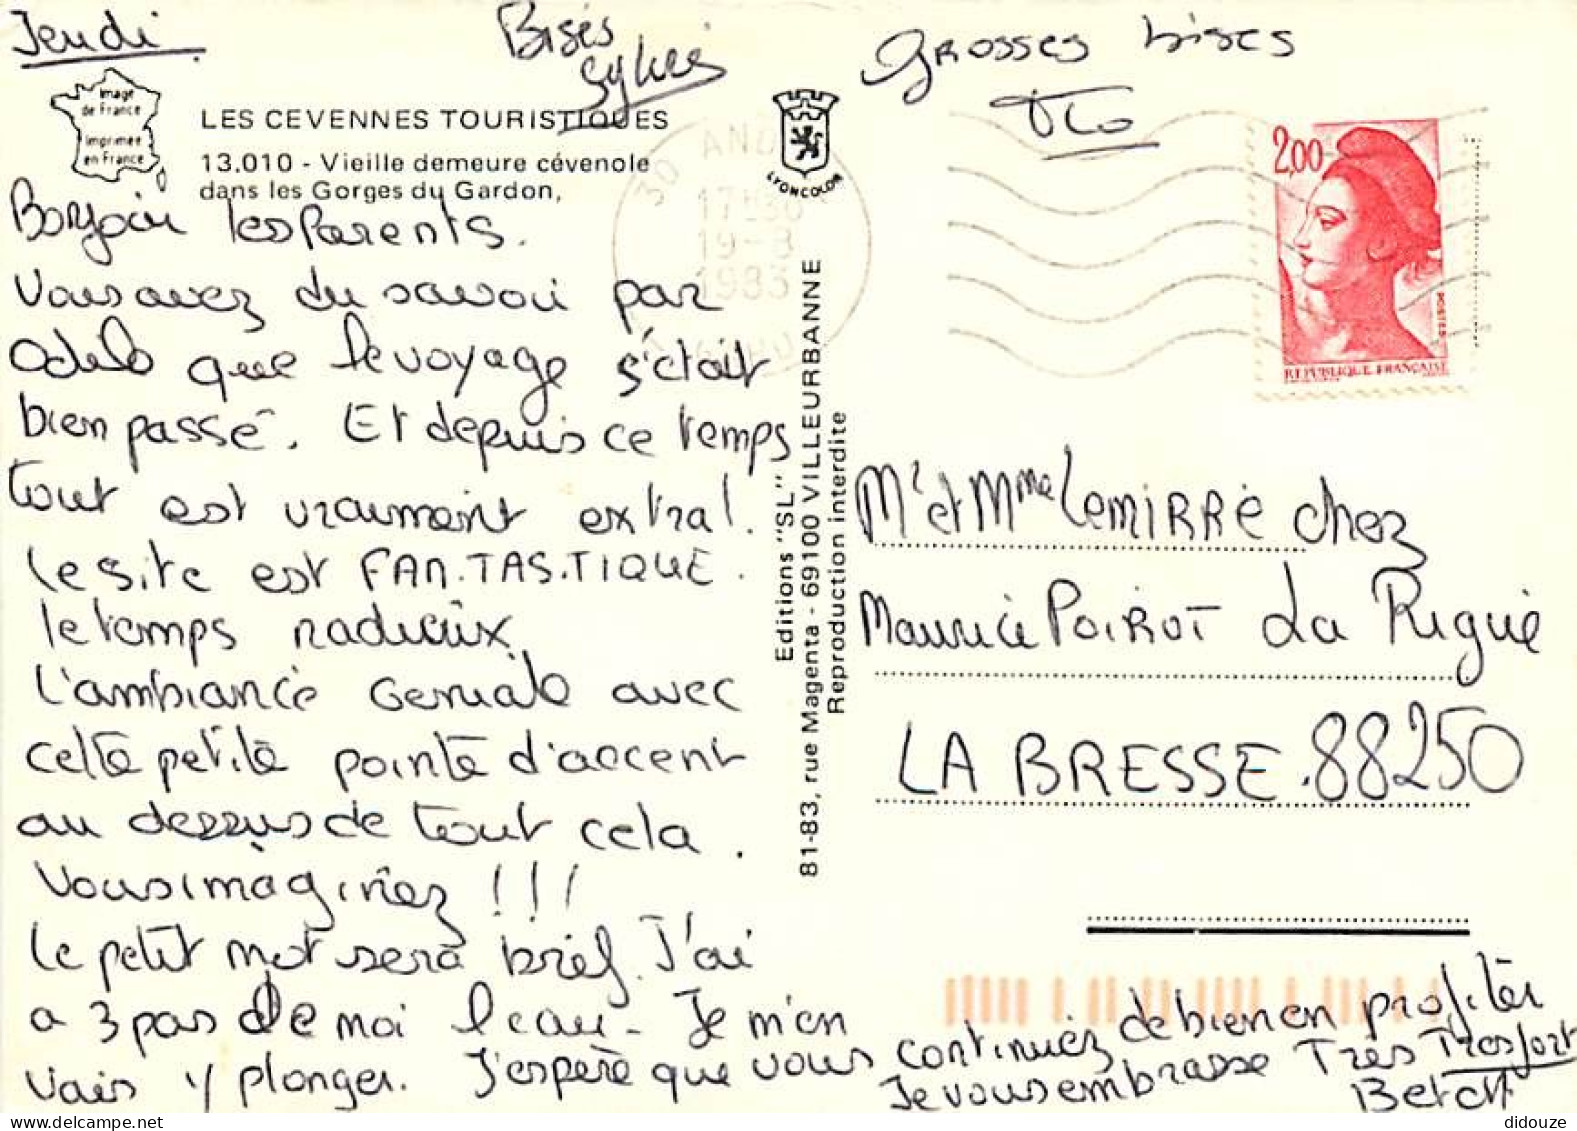 Jeudi
Bisés
Sylvie
Grosses bises
Image
de France
Imprimée
en France
LES CEVENNES TOURISTIQUES
13.010 - Vieille demeure cévenole
dans les Gorges du Gardon,
LYONCOLOR
30 AND
19-8
1983
2,00
POSTES
REPUBLIQUE FRANÇAISE
Bonjour les Parents.
Vous avez du savoir par
Odile que le voyage s'était
bien passé. Et depuis ce temps
tout est vraiment extra!
Le site est FAN.TAS.TIQUE.
le temps radieux
L'ambiance Geniale avec
cette petite pointe d'accent
au dessus de tout cela.
Vous imaginez !!!
Le petit mot sera bref. J'ai
a 3 pas de moi l'eau - Je m'en
vais y plonger. J'espère que vous continuez de bien en profiter
Je vous embrasse Très Très fort
Betch
Editions "SL"
81-83, rue Magenta - 69100 VILLEURBANNE
Reproduction interdite
Mr et Mme LEMIRRE chez
Maurice POIROT La Rigue
LA BRESSE. 88250
didouze